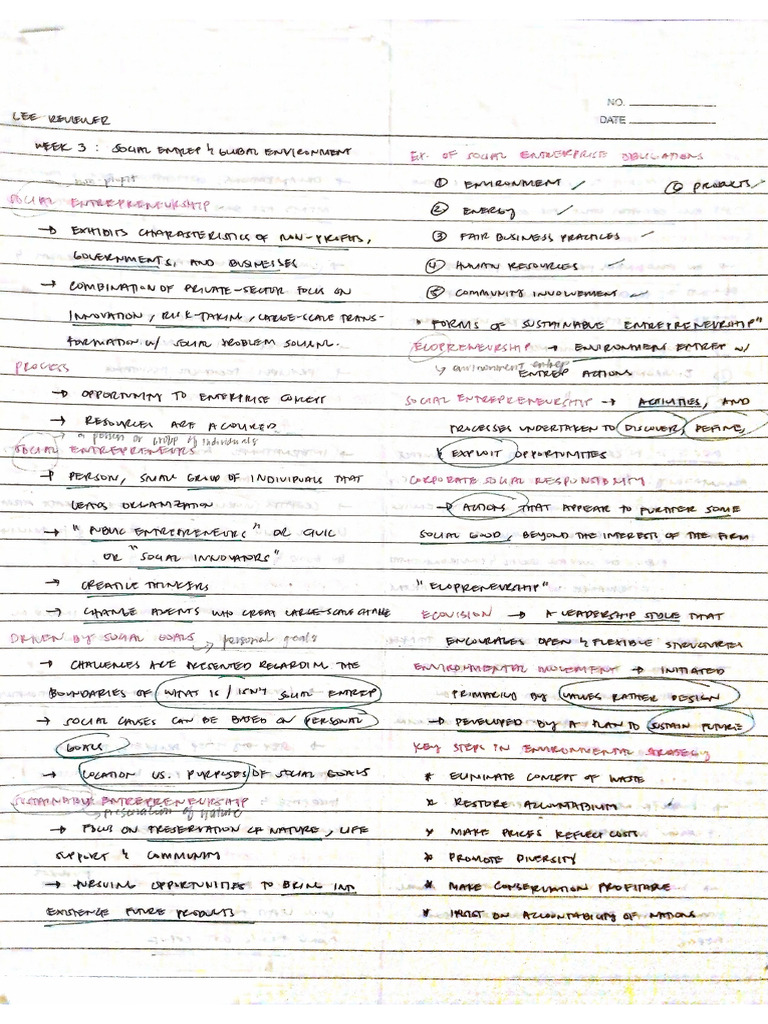 NO.
DATE
LEE REVIEWER
WEEK 3 : SOCIAL ENTREP & GLOBAL ENVIRONMENT
non profit
SOCIAL ENTREPRENEURSHIP
→ EXHIBITS CHARACTERISTICS OF NON-PROFITS,
GOVERNMENTS, AND BUSINESSES
→ COMBINATION OF PRIVATE-SECTOR FOCUS ON
INNOVATION, RISK-TAKING, LARGE-SCALE TRANS-
FORMATION W/ SOCIAL PROBLEM SOLVING.
PROCESS
→ OPPORTUNITY TO ENTERPRISE CONCEPT
→ RESOURCES ARE ACQUIRED
→ a person or group of individuals
SOCIAL ENTREPRENEURS
→ PERSON, SMALL GROUP OF INDIVIDUALS THAT
LEADS ORGANIZATION
→ "PUBLIC ENTREPRENEURS" OR CIVIC
OR "SOCIAL INNOVATORS"
→ CREATIVE THINKERS
→ CHANGE AGENTS WHO CREAT LARGE-SCALE CHANGE
DRIVEN BY SOCIAL GOALS → personal goals
→ CHALLENGES ARE PRESENTED REGARDING THE
BOUNDARIES OF WHAT IS / ISN'T SOCIAL ENTREP
→ SOCIAL CAUSES CAN BE BASED ON PERSONAL
GOALS
→ LOCATION VS. PURPOSES OF SOCIAL GOALS
SUSTAINABLE ENTREPRENEURSHIP
→ preservation of nature
→ FOCUS ON PRESERVATION OF NATURE, LIFE
SUPPORT & COMMUNITY
→ PURSUING OPPORTUNITIES TO BRING INTO
EXISTENCE FUTURE PRODUCTS
EX. OF SOCIAL ENTERPRISE OBLIGATIONS
① ENVIRONMENT ✓ ⑥ PRODUCTS ✓
② ENERGY ✓
③ FAIR BUSINESS PRACTICES ✓
④ HUMAN RESOURCES ✓
⑤ COMMUNITY INVOLVEMENT ✓
"FORMS OF SUSTAINABLE ENTREPRENEURSHIP"
ECOPRENEURSHIP → ENVIRONMENT ENTREP W/
→ environment entrep
ENTREP ACTIONS
SOCIAL ENTREPRENEURSHIP → ACTIVITIES, AND
PROCESSES UNDERTAKEN TO DISCOVER, DEFINE,
& EXPLOIT OPPORTUNITIES
CORPORATE SOCIAL RESPONSIBILITY
→ ACTIONS THAT APPEAR TO FURTHER SOME
SOCIAL GOOD, BEYOND THE INTERESTS OF THE FIRM
"ECOPRENEURSHIP"
ECOVISION → A LEADERSHIP STYLE THAT
ENCOURAGES OPEN & FLEXIBLE STRUCTURES
ENVIRONMENTAL MOVEMENT → INITIATED
PRIMARILY BY VALUES RATHER DESIGN
→ DEVELOPED BY A PLAN TO SUSTAIN FUTURE
KEY STEPS IN ENVIRONMENTAL STRATEGY
* ELIMINATE CONCEPT OF WASTE
* RESTORE ACCOUNTABILITY
* MAKE PRICES REFLECT COSTS
* PROMOTE DIVERSITY
* MAKE CONSERVATION PROFITABLE
* INSIST ON ACCOUNTABILITY OF NATIONS